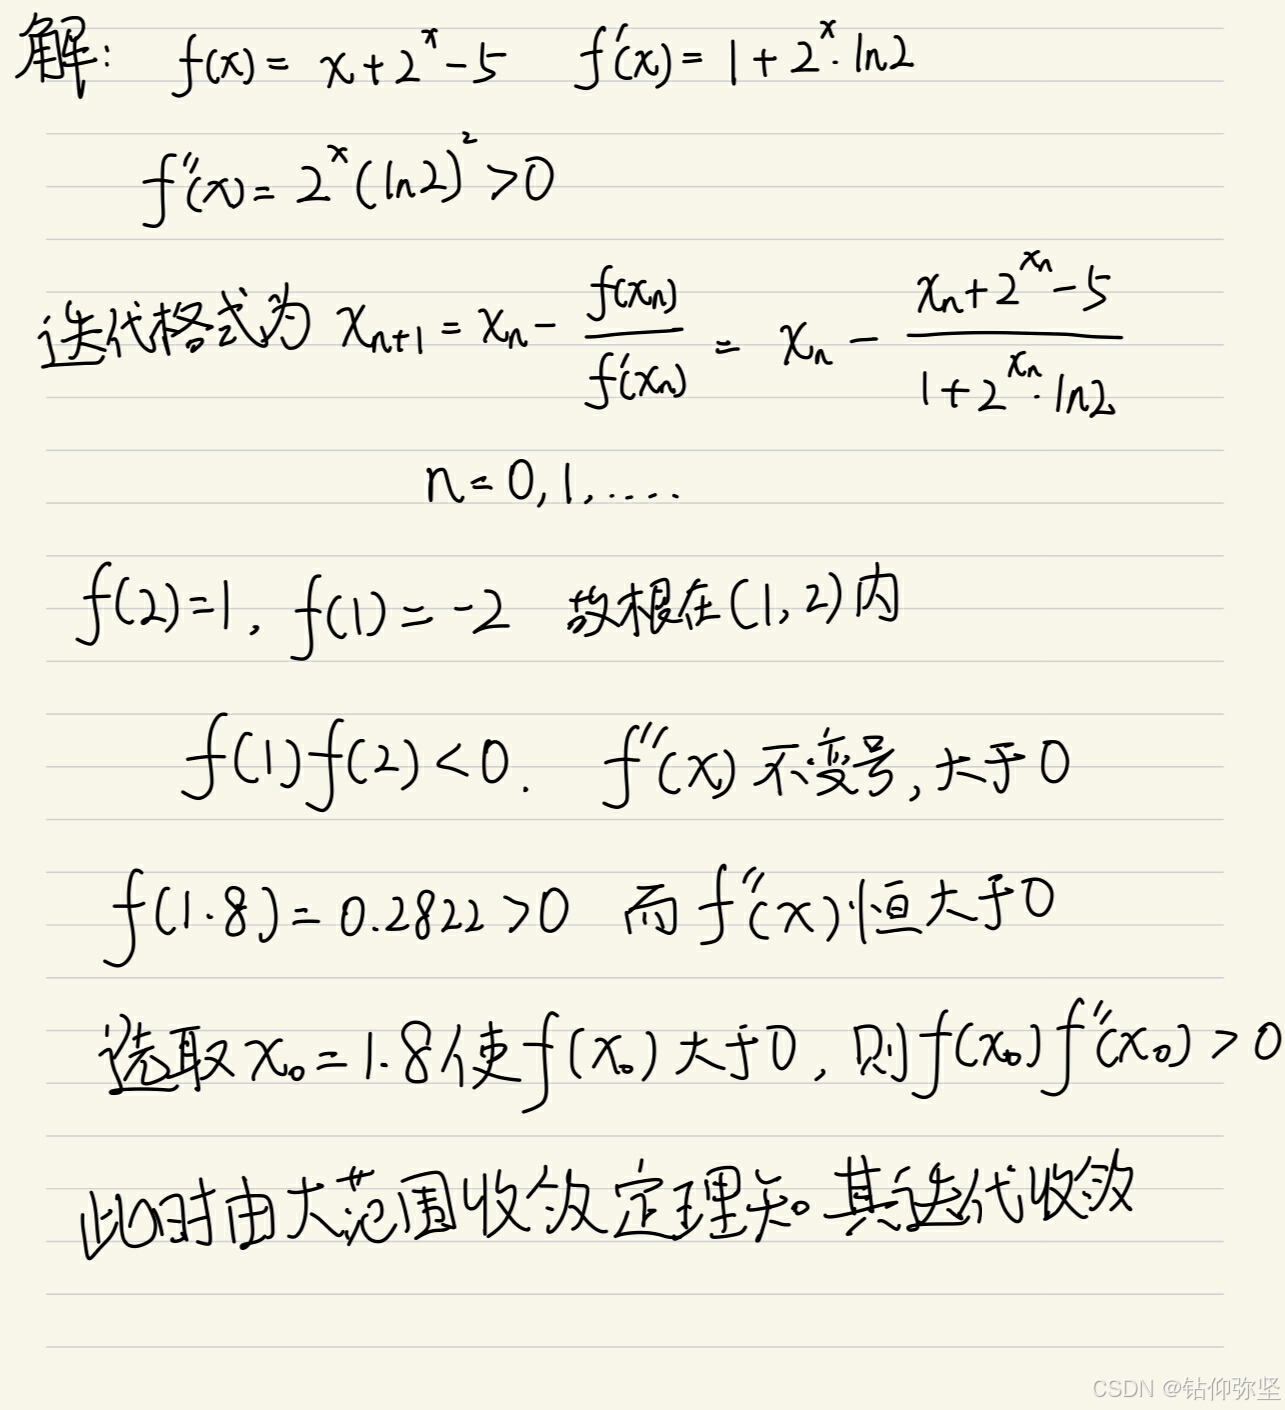 解: f(x) = x + 2^x - 5 f'(x) = 1 + 2^x · ln2
f''(x) = 2^x (ln2)^2 > 0
迭代格式为 x_{n+1} = x_n - \frac{f(x_n)}{f'(x_n)} = x_n - \frac{x_n + 2^{x_n} - 5}{1 + 2^{x_n} · ln2}
n = 0, 1, ....
f(2) = 1, f(1) = -2 故根在(1, 2)内
f(1)f(2) < 0. f''(x) 不变号, 大于0
f(1.8) = 0.2822 > 0 而 f''(x) 恒大于0
选取 x_0 = 1.8 使 f(x_0) 大于0, 则 f(x_0) f''(x_0) > 0
此时由大范围收敛定理知。其迭代收敛
CSDN @钻仰弥坚